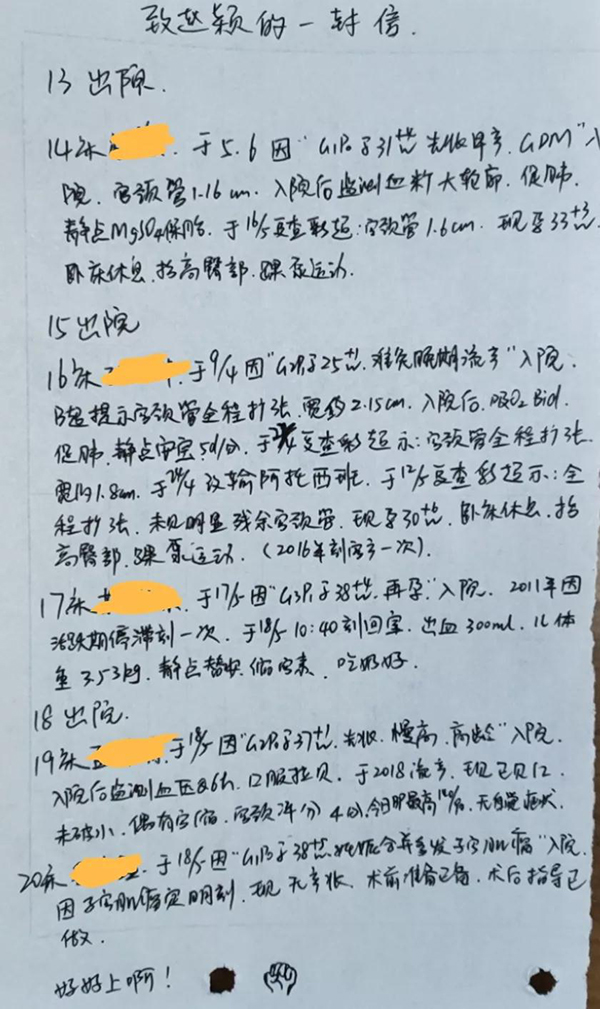 致赵颖的一封信.
13 出院.
14床 于5.6因"G1P0孕31+4w 先收早产. GDM"入
院. 宫颈管1.16cm. 入院后监测血糖大轮廓. 促肺.
静点MgSO4保胎. 于16/5复查彩超:宫颈管1.6cm. 现孕33+3w
卧床休息. 抬高臀部. 踝泵运动.
15 出院
16床 于9/4因"G2P0孕25+1w. 难免晚期流产"入院.
B超提示宫颈管全程扩张. 宽约2.15cm. 入院后. 吸O2 Bid.
促肺. 静点安宝5d/分. 于24/4复查彩超示:宫颈管全程扩张
宽约1.8cm. 于28/4改输阿托西班. 于12/5复查彩超示:全
程扩张. 未见明显残余宫颈管. 现孕30+w. 卧床休息. 抬
高臀部. 踝泵运动. (2016年剖宫产一次).
17床 于17/5因"G3P1孕38+6w. 再孕"入院. 2011年因
活跃期停滞剖一次. 于18/5 10:40剖回室. 出血300ml. 儿体
重3.53kg. 静点替硝. 缩宫素. 吃奶好.
18 出院.
19床 于18/5因"G2P0孕37+1w. 先收. 慢高. 高龄"入院.
入院后监测血压Q6h. 口服拉贝. 于2018流产. 现已贝12.
未破水. 偶有宫缩. 宫颈评分4分. 今日BP最高 无自觉症状.
20床 于18/5因"G1P0孕38+w. 妊娠合并多发子宫肌瘤"入院.
因子宫肌瘤定明剖. 现无产收. 术前准备已备. 术后指导已
做.
好好上啊!